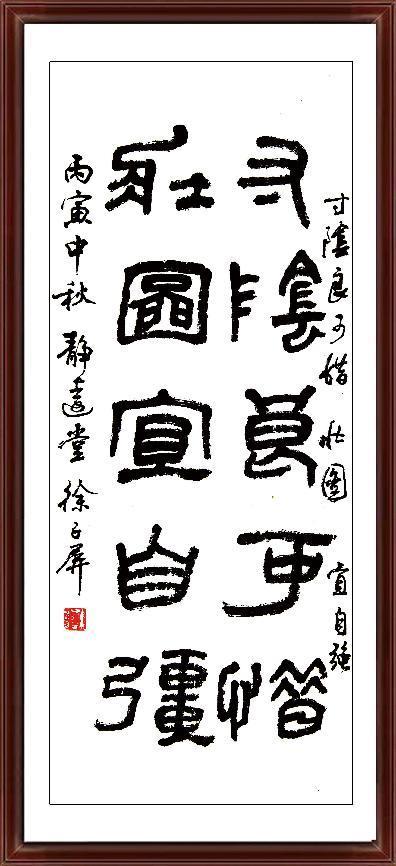 寸陰良可惜 壯圖 宜自強
寸陰良可惜
壯圖宜自彊
丙寅中秋 靜遠堂 徐屏